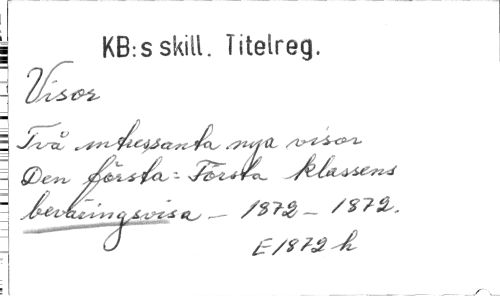 KB:s skill. Titelreg.
Visor
Två intressanta nya visor
Den första: Första klassens
beväringsvisa – 1872 – 1872.
E 1872 h